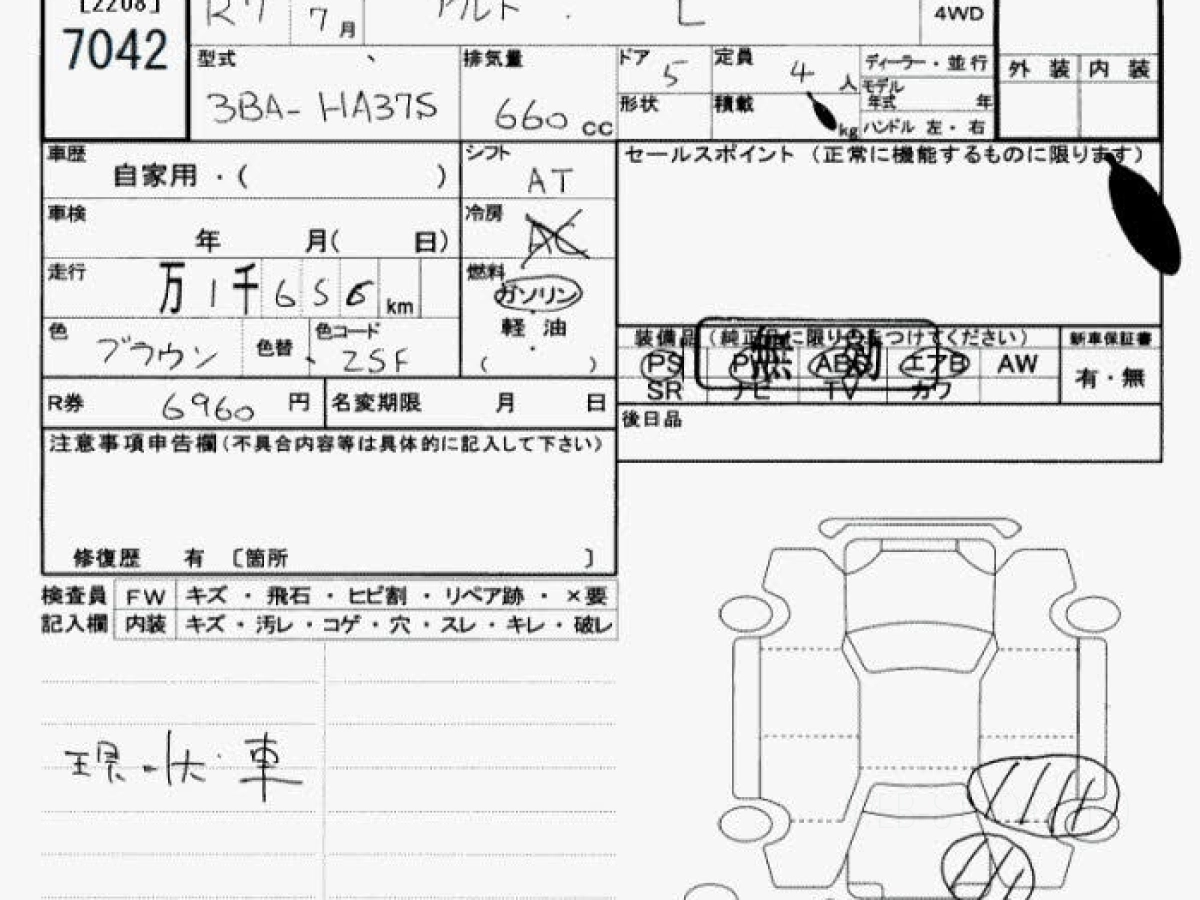 [2208]
R7 7月 アルト L 4WD
7042
型式 3BA-HA37S
排気量 660 CC
ドア 5
定員 4人
形状
積載 kg
ディーラー・並行
モデル年式 年
ハンドル 左・右
外装 内装
車歴 自家用・( )
シフト AT
セールスポイント (正常に機能するものに限ります)
車検 年 月( 日)
冷房 AC
走行 万1千656km
燃料 ガソリン
軽・油
( )
色 ブラウン 色替 色コード ZSF
装備品(純正品に限り○をつけてください)
無 別
新車保証書
PS PW ABS エアB AW 有・無
SR ナビ TV カワ
R券 6960円 名変期限 月 日
後日品
注意事項申告欄(不具合内容等は具体的に記入して下さい)
修復歴 有 〔箇所 〕
検査員 FW キズ・飛石・ヒビ割・リペア跡・×要
記入欄 内装 キズ・汚レ・コゲ・穴・スレ・キレ・破レ
現状車